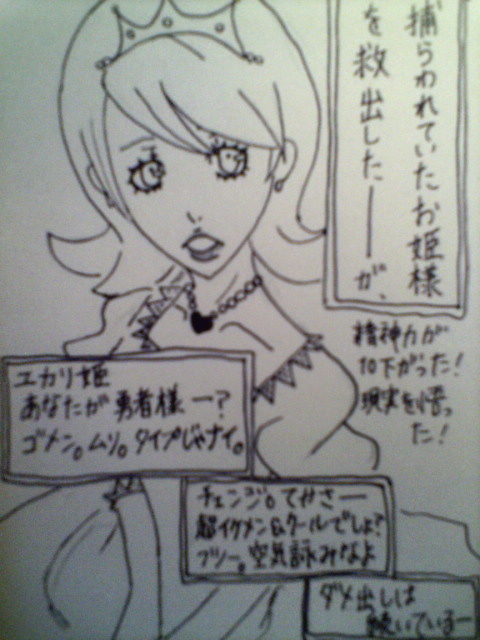 捕らわれていたお姫様
を救出した――が、
精神力が
10下がった!
現実を悟っ
た!
エカリ姫
あなたが勇者様ー?
ゴメン。ムリ。タイプじゃナイ。
チェンジ。てかさー
超イケメン&クールでしょ?
フツー。空気詠みなよ
ダメ出しは
続いているー